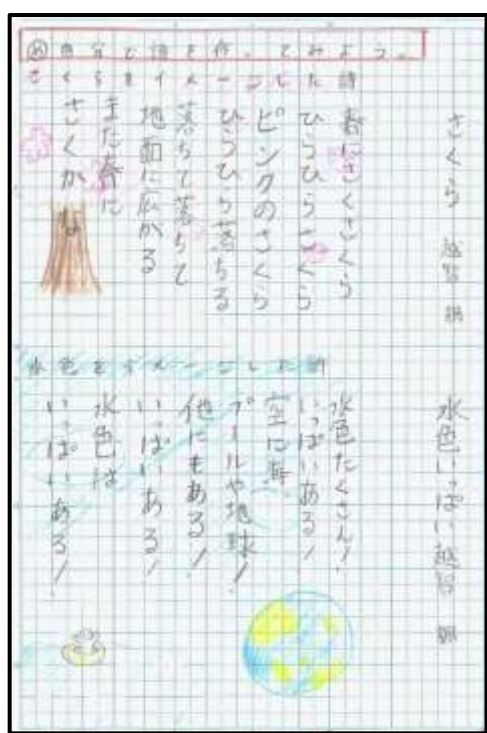 め 自分で詩を作ってみよう。
さくらをイメージした詩
さくら
春にさくさくら
ひらひらさくら
ピンクのさくら
ひらひら落ちる
落ちて落ちて
地面に広がる
また春に
さくかな
水色をイメージした詩
水色いっぱい
水色たくさん!
いっぱいある!
空に海
プールや地球!
他にもある!
いっぱいある!
水色は
いっぱいある!